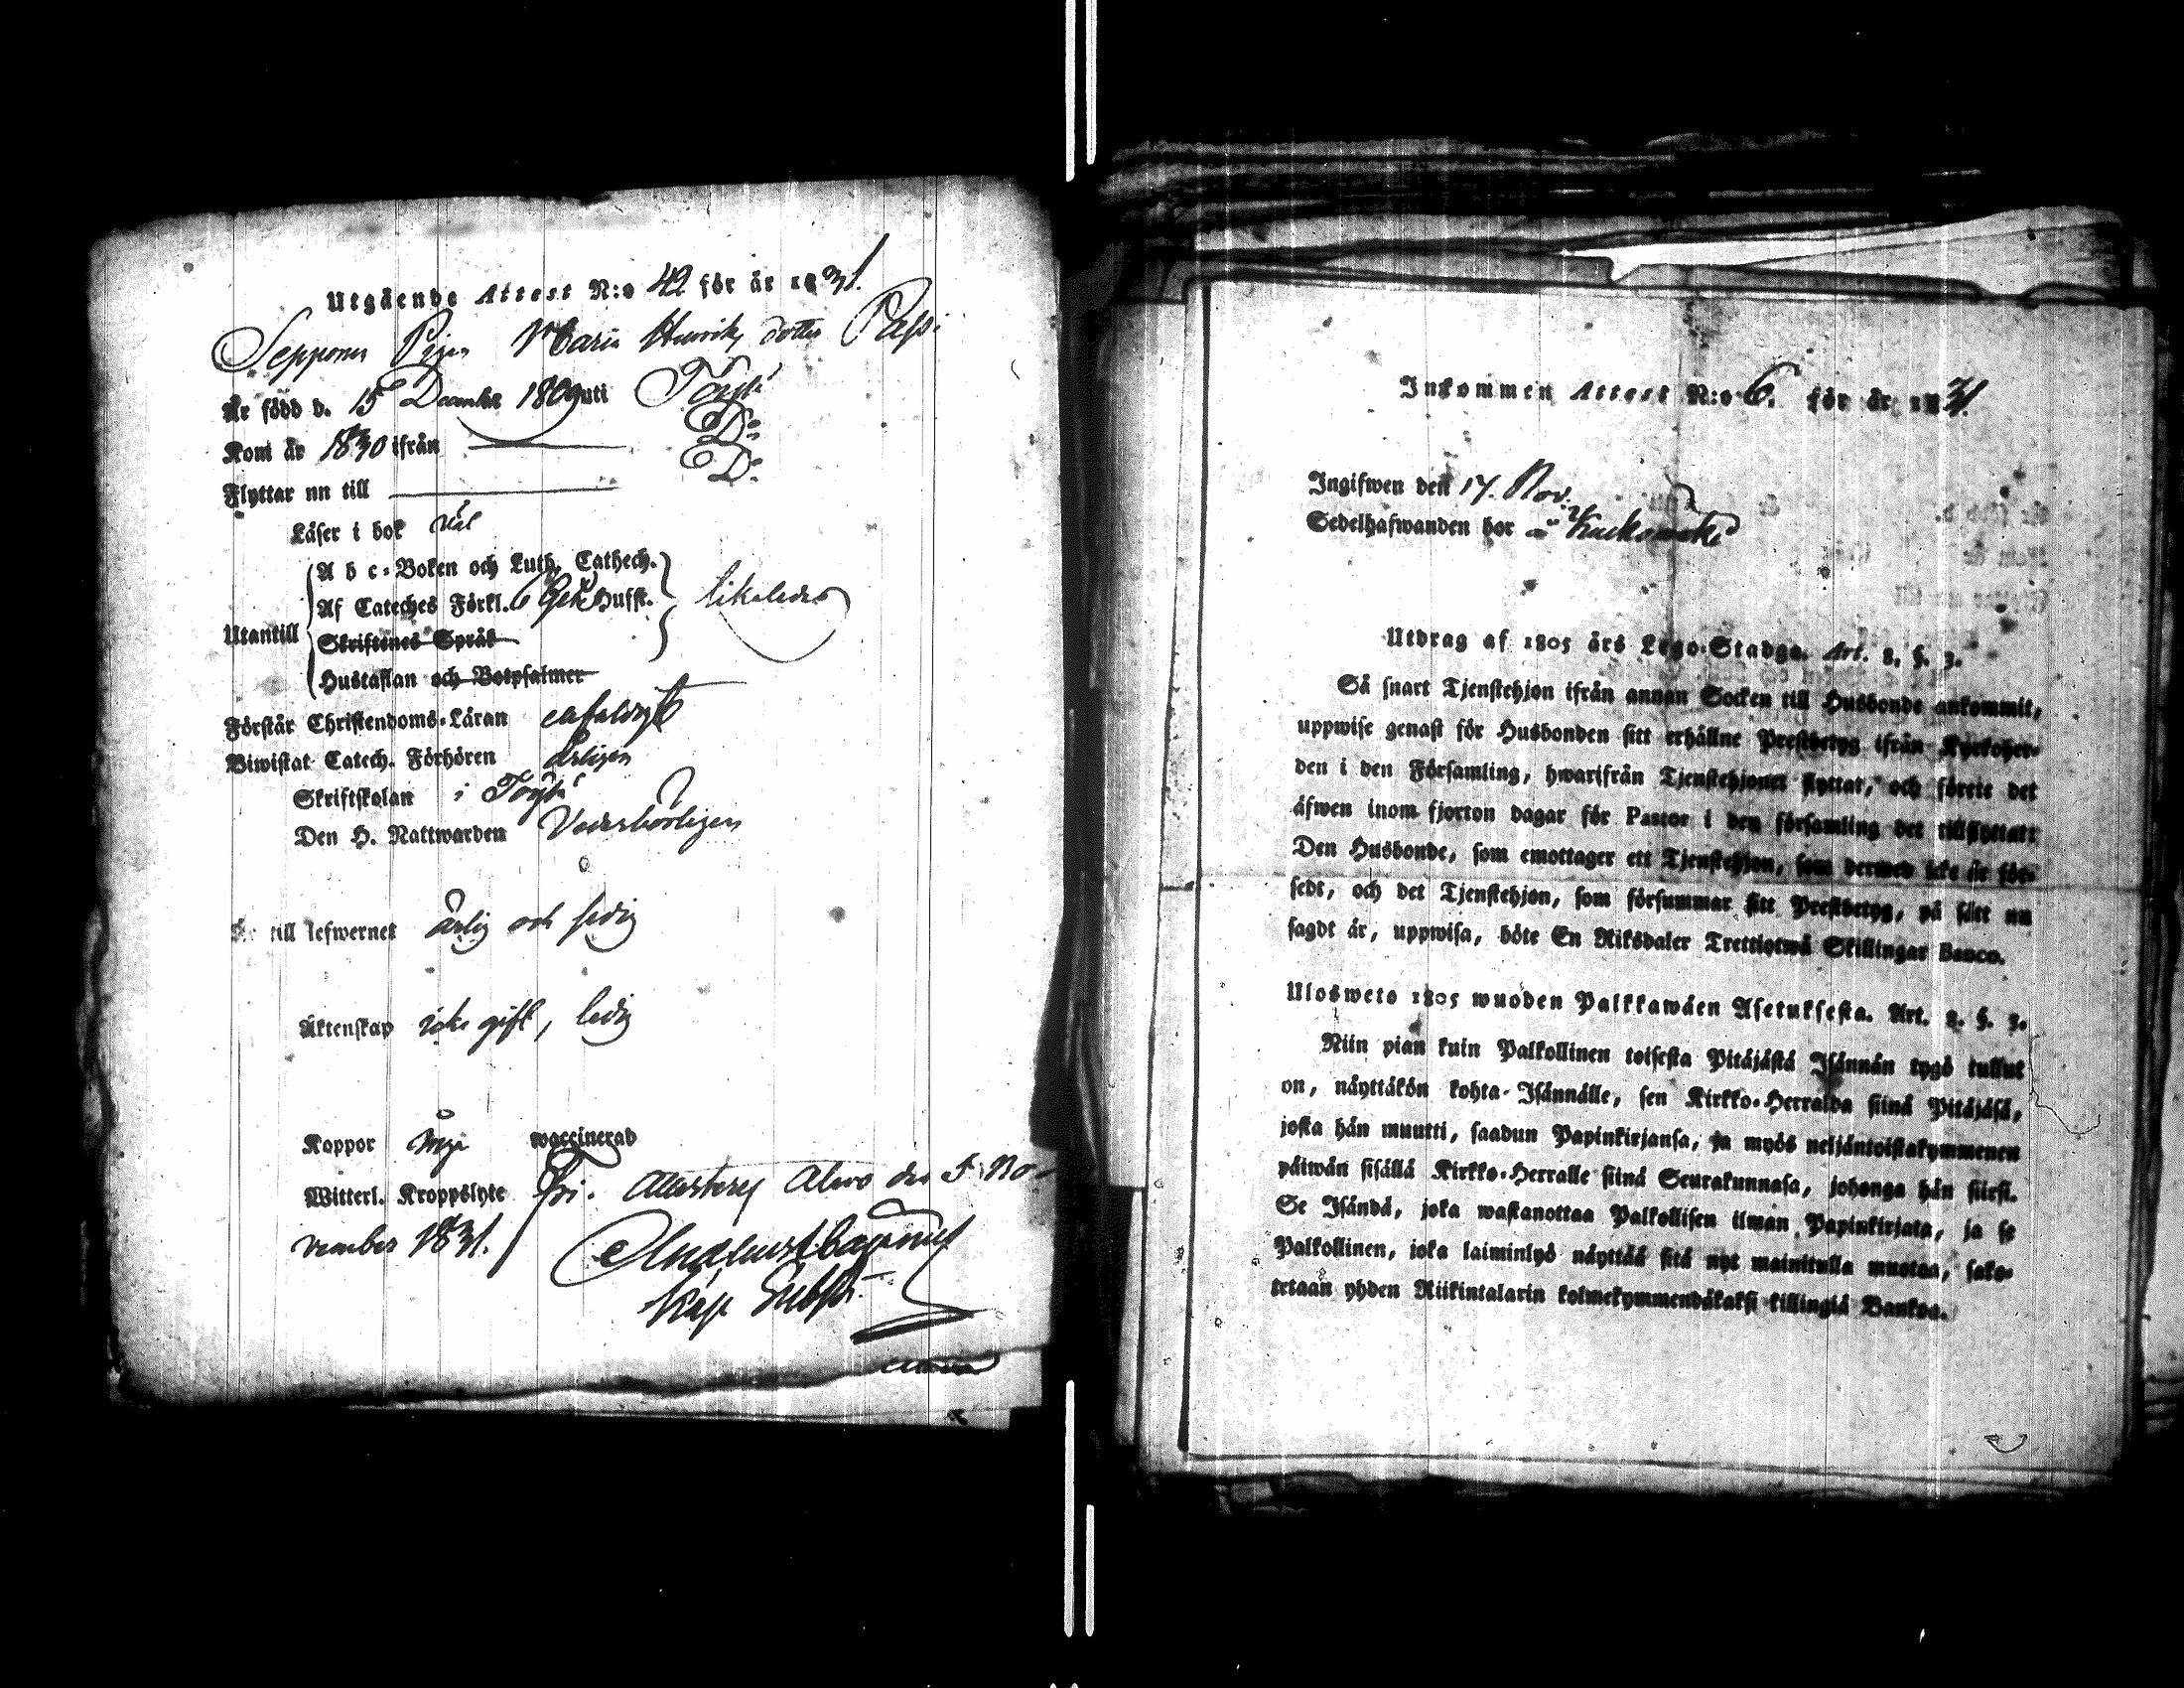 Utgående Attest N:o 42 för år 1831.
Seppones Pigan Maria Henriks dotter Passi
Är född d. 15 December 1809 uti Töysä
Kom år 1830 ifrån Do
Flyttar nu till Do
Läser i bok väl
A b c-Boken och Luth. Cathech.
Af Cateches Förkl. 6 Hufst. likaledes
Utantill
Skriftenes Språk
Hustaflan och Botpsalmer
Förstår Christendoms-Läran enfaldigt
Biwistat Catech. Förhören årligen
Skriftskolan i Töysä
Den H. Nattwarden Vederbörligen
Är till lefwernet ärlig och ledig
Äktenskap icke gift, ledig
Koppor waccinerad
Witterl. Kroppslyte Fri. Attesterej Alavo den 5 No-
vember 1831.
Kap
Inkommen Attest N:o 6. för år 1831.
Ingifwen den 17. Nov.
Sedelhafwanden bor
Utdrag af 1805 års Lego-Stadga. Art. 2. §. 3.
Så snart Tjenstehjon ifrån annan Socken till Husbonde ankommit,
uppwise genast för Husbonden sitt erhållne Prestbetyg ifrån Kyrkoher-
den i den Församling, hwarifrån Tjenstehjonet flyttat, och förete det
äfwen inom fjorton dagar för Pastor i den församling det tillflyttat:
Den Husbonde, som emottager ett Tjenstehjon, som dermed icke är för-
sedt, och det Tjenstehjon, som försummar sitt Prestbetyg, på sätt nu
sagdt är, uppwisa, böte En Riksdaler Trettiotwå Skillingar Banco.
Ulosweto 1805 wuoden Palkkawäen Asetuksesta. Art. 2. §. 3.
Niin pian kuin Palkollinen toisesta Pitäjästä Isännän tygö tullut
on, näyttäkön kohta Isännälle, sen Kirkko-Herralda siinä Pitäjäsä,
josta hän muutti, saadun Papinkirjansa, ja myös neljäntoistakymmenen
päiwän sisällä Kirkko-Herralle siinä Seurakunnasa, johonga hän siirsi.
Se Isändä, joka wastanottaa Palkollisen ilman Papinkirjata, ja se
Palkollinen, joka laiminlyö näyttää sitä nyt mainitulla muotoa, sako-
tetaan yhden Riikintalarin kolmekymmendäkaksi killingiä Bankoa.